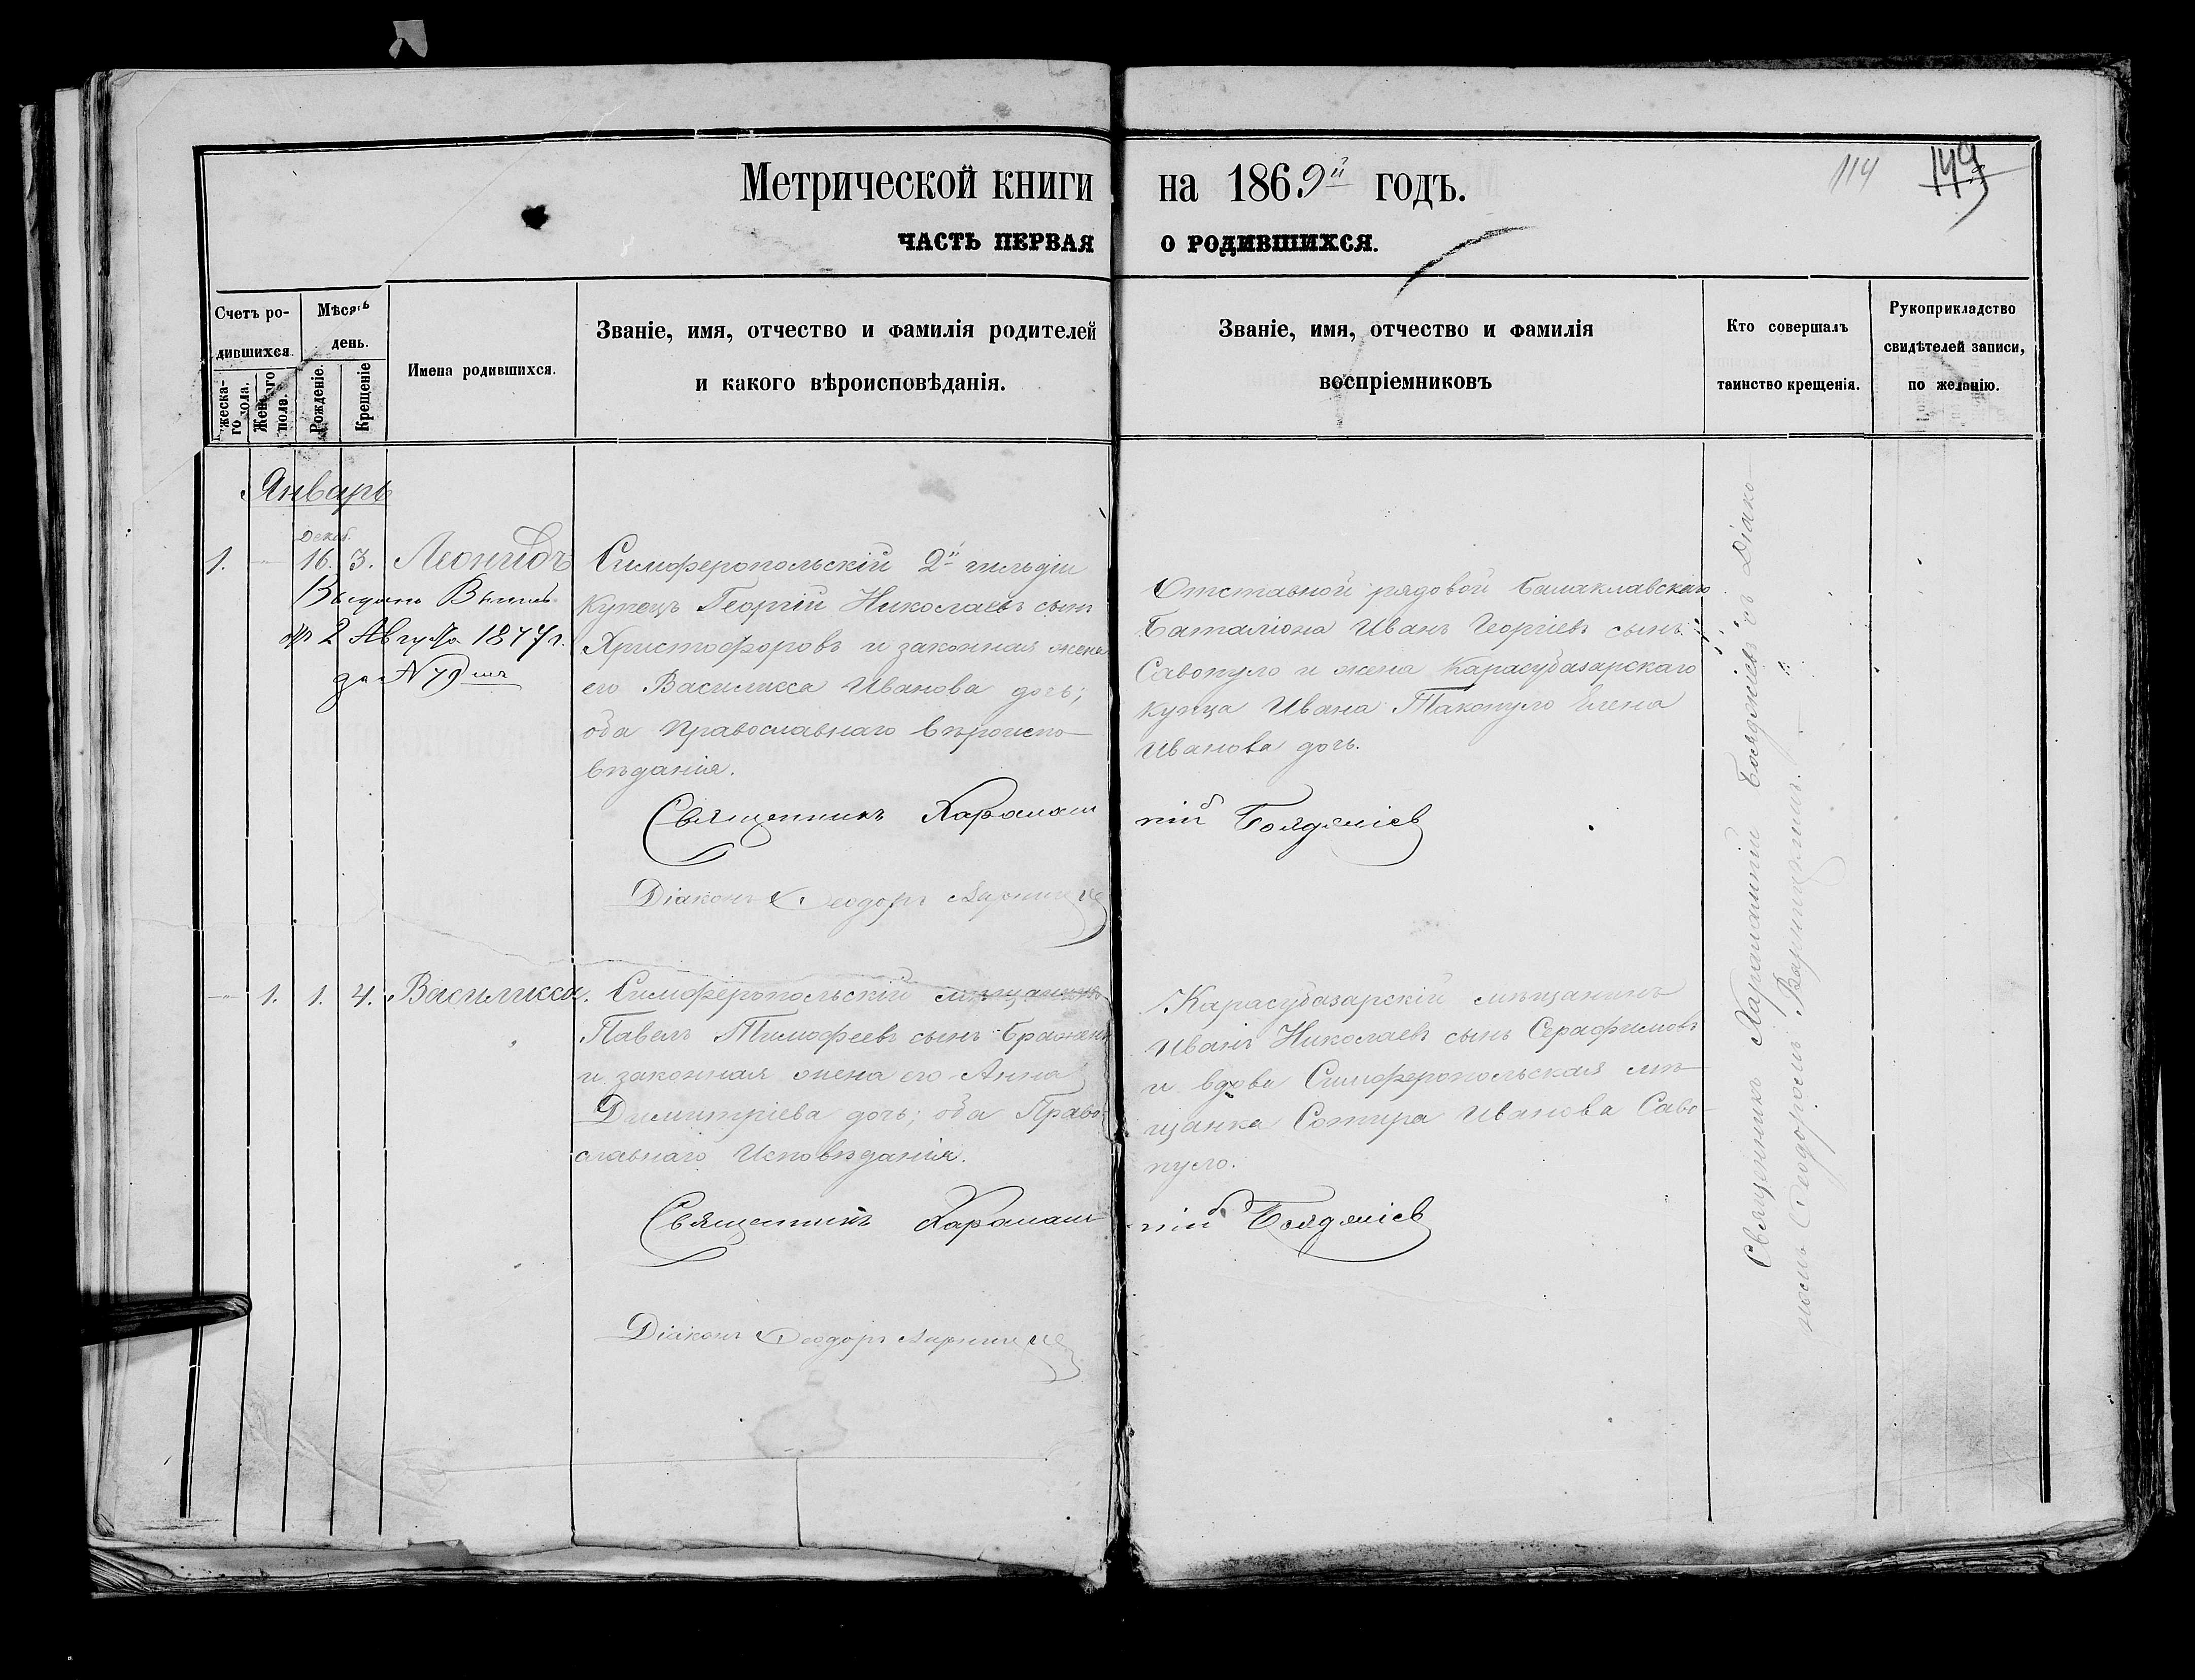 Метрической книги на 1869й годъ.
114 149
ЧАСТЬ ПЕРВАЯ О РОДИВШИХСЯ.
Счетъ ро-
дившихся.
жеска-
го пола.
Женскаго
пола.
Мѣсяцъ
день.
Рожденіе.
Крещеніе
Имена родившихся.
Званіе, имя, отчество и фамилія родителей
и какого вѣроисповѣданія.
Званіе, имя, отчество и фамилія
воспріемниковъ
Кто совершалъ
таинство крещенія.
Рукоприкладство
свидѣтелей записи,
по желанію.
Январь
Декаб.
1. — 16. 3. Леонидъ
2 Августа 1877 г.
за N 79
Симферопольскій 2й гильдіи
купецъ Георгій Николаевъ сынъ
Христофоровъ и законная жена
его Василисса Иванова дочь;
оба Православнаго вѣроиспо-
вѣданія.
Отставной рядовой Балаклавскаго
Баталіона Иванъ Георгіевъ сынъ
Савопуло и жена Карасубазарскаго
купца Ивана Такопуло Елена
Иванова дочь.
Священникъ Харалам
пій Бояджіев
Діаконъ Ѳеодоръ
— 1. 1. 4. Василисса.
Симферопольскій мѣщанинъ
Павелъ Тимофеевъ сынъ
и законная жена его Анна
Димитріева дочь; оба Право-
славнаго Исповѣданія.
Карасубазарскій мѣщанинъ
Иванъ Николаевъ сынъ Серафимовъ
и вдова Симферопольская мѣ-
щанка Сотира Иванова Саво-
пуло.
Священникъ Харалам
пій Бояджіев
Діаконъ Ѳеодоръ
Священникъ Харалампій Бояджіевъ съ Діако-
номъ Ѳеодоромъ